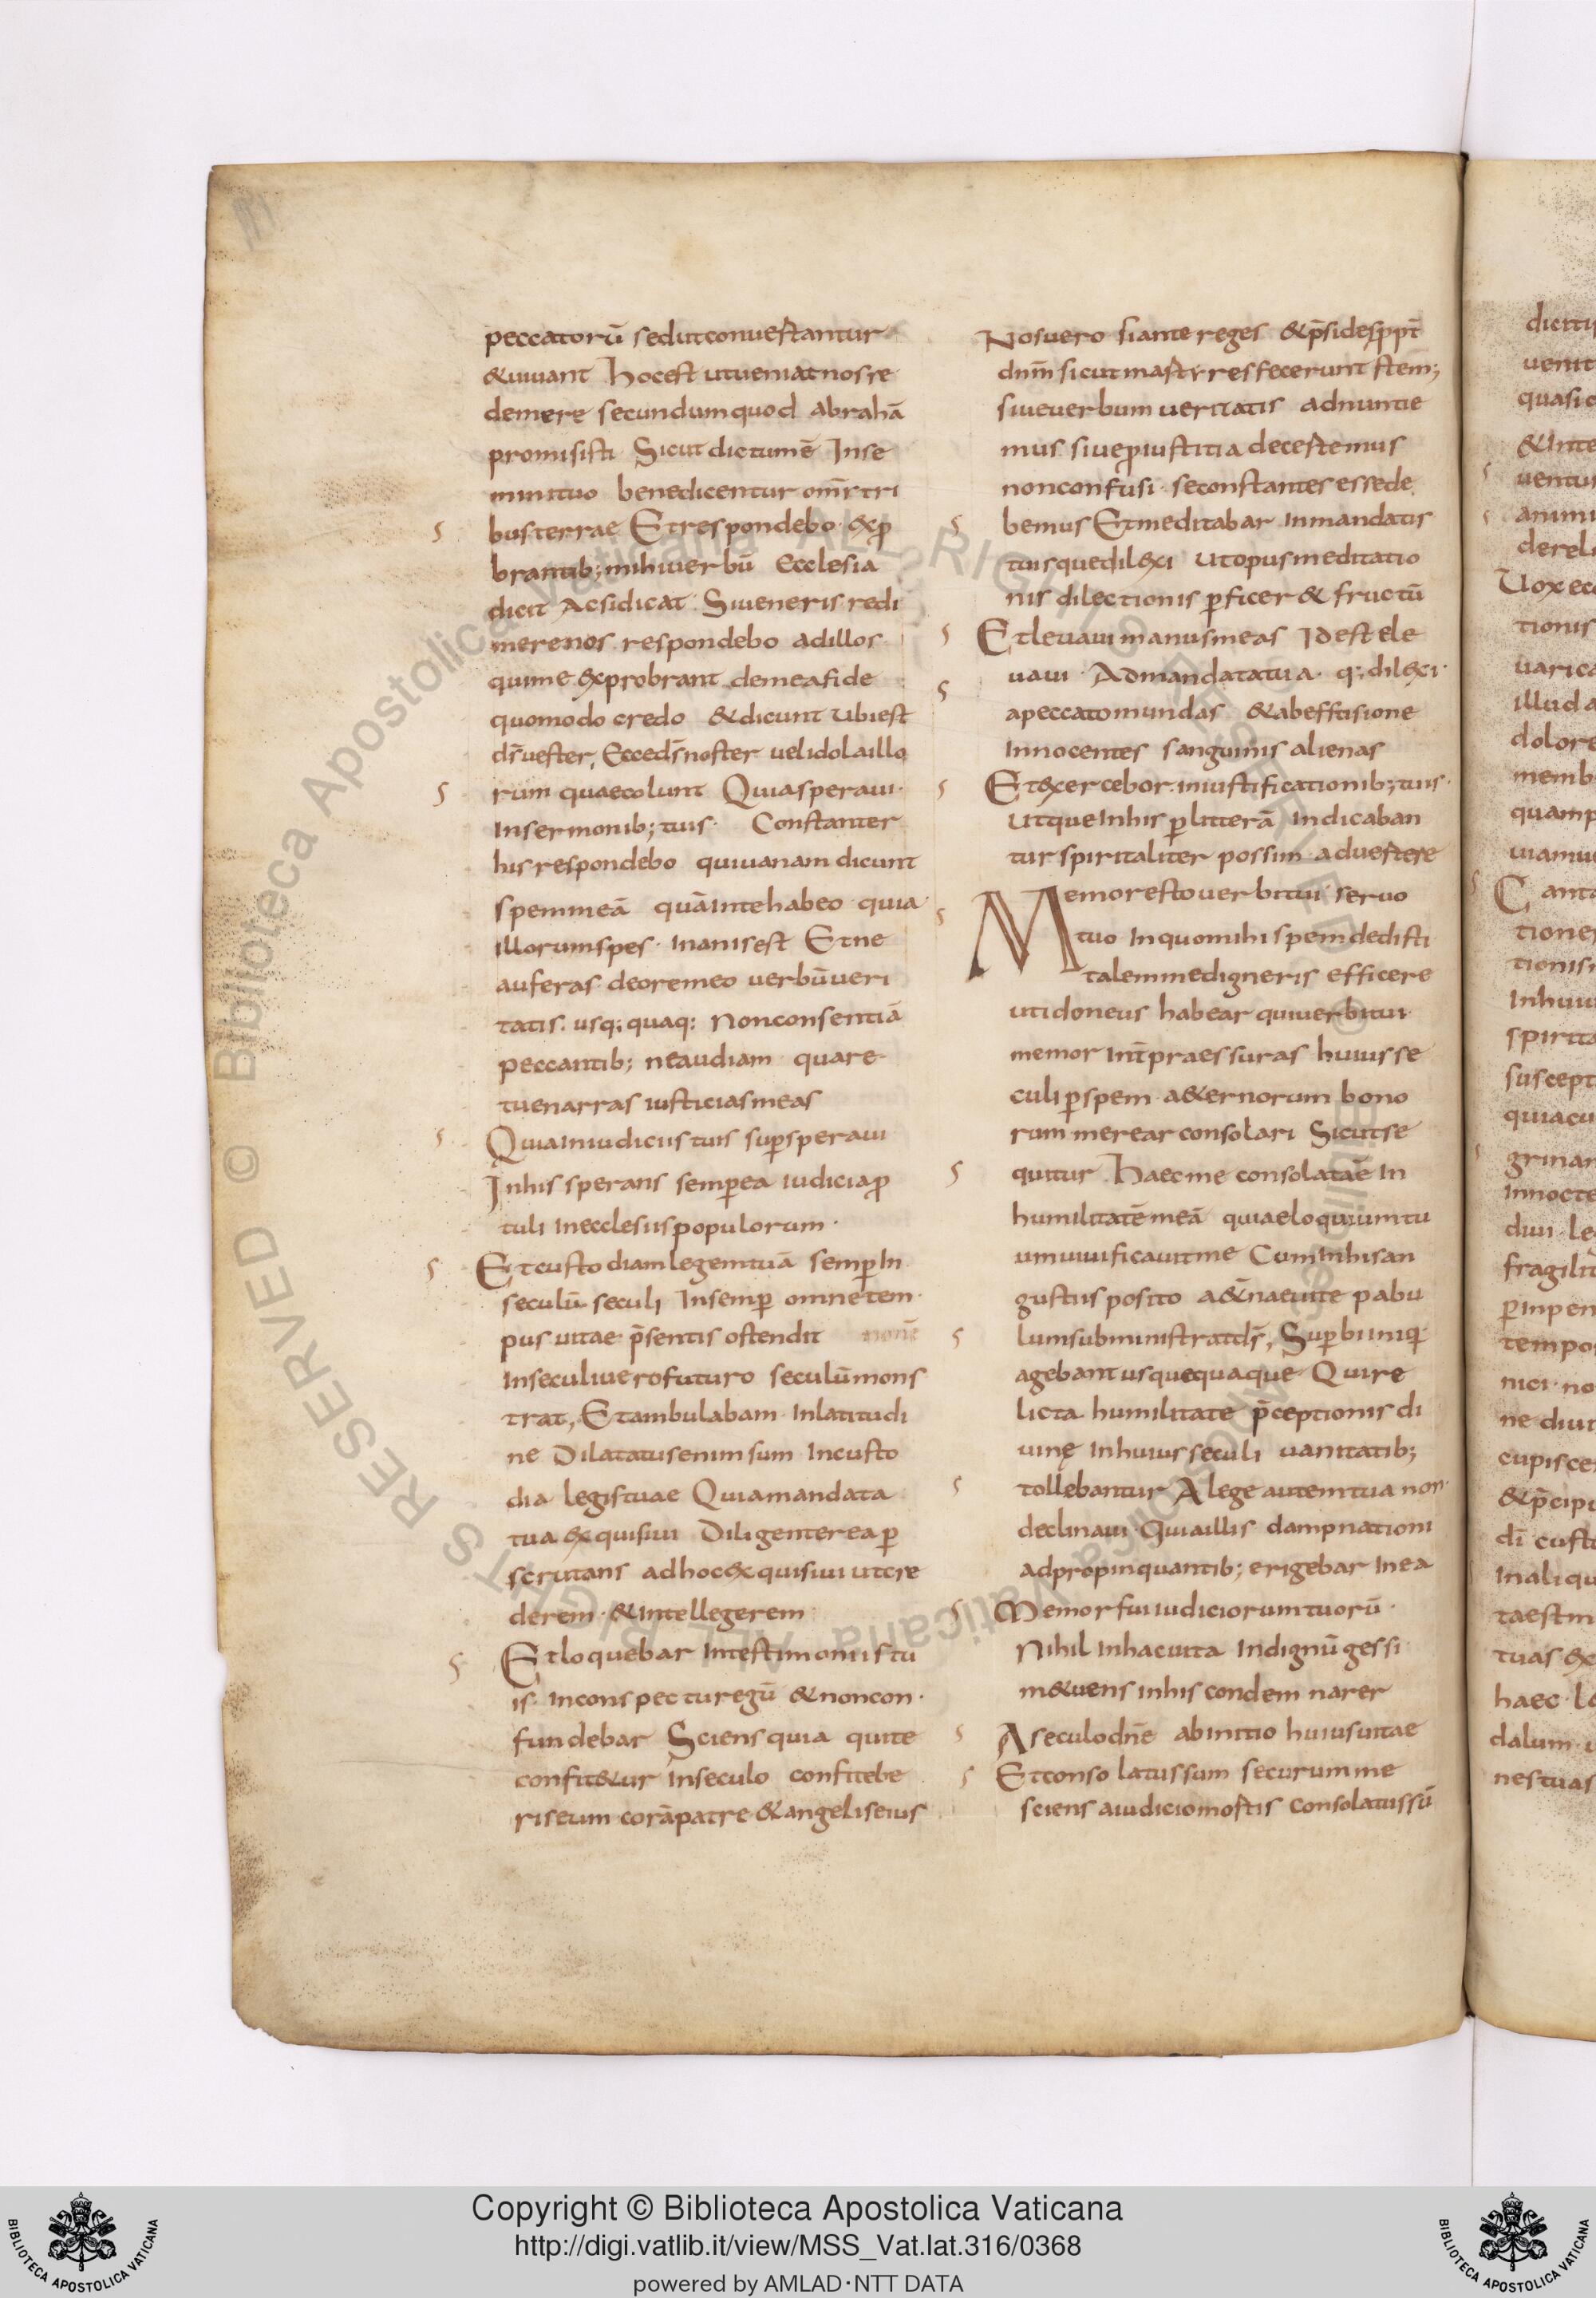 peccatorū sed ut convertantur
& uiuant Hoc est ut ueniat nos re
demere secundum quod abrahā
promisisti Sicut dictum ē In se
mini tuo benedicentur om̄s tri
bus terrae Et respondebo exp
brantib; mihi uerbū Ecclesia
dicit Ac si dicat Si ueneris redi
mere nos respondebo ad illos
qui me exprobrant de mea fide
quomodo credo & dicunt Ubi est
ds̄ uester, Ecce ds̄ noster uel idola illo
rum quae colunt Quia speraui
In sermonib; tuis Constanter
his respondebo qui uanam dicunt
spem meā quā in te habeo quia
illorum spes Inanis est Et ne
auferas de ore meo uerbū ueri
tatis usq; quaq; Non consentiā
peccantib; ne audiam quare
tu enarras iusticias meas
Quia in iudiciis tuis sup speraui
In his sperans semp ea iudicia p
tuli In ecclesiis populorum
Et custodiam legem tuā semp In
seculū seculi In semp omne tem
pus uitae p̄sentis ostendit non ē
In seculi uero futuro seculū mons
trat, Et ambulabam In latitudi
ne Dilatatus enim sum In custo
dia legis tuae Quia mandata
tua exquisiui Diligenter ea p
scrutans ad hoc exquisiui ut cre
derem & Intellegerem
Et loquebar In testimoniis tu
is In conspectu regū & non con
fundebar Sciens quia qui te
confit&ur In seculo confitebe
ris eum corā patre & angelis eius
Nos uero si ante reges & p̄sides ppt̄
dn̄m sicut martyres fecerunt stem;
siue uerbum ueritatis adnuntie
mus siue p iustitia decertemus
non confusi se constantes esse de
bemus Et meditabar In mandatis
tuis que dilexi Ut opus meditatio
nis dilectionis pficer& fructū
Et leuaui manus meas Id est ele
uaui Ad mandata tua q; dilexi
a peccato mundas & ab effusione
Innocentes sanguinis alienas
Et exercebor In iustificationib; tuis
Ut que In his p litterā Indicaban
tur spiritaliter possim aduertere
Memor esto uerbi tui seruo
tuo In quo mihi spem dedisti
talem me digneris efficere
ut idoneus habear qui uerbi tui
memor Int̄ praessuras huius se
culi p spem a&ernorum bono
rum merear consolari Sicut se
quitur Haec me consolata ē In
humilitatē meā quia eloquium tu
um uiuificauit me Cum In his an
gustiis posito a&ernae uite pabu
lum subministrat ds̄, Supbi iniq
agebant usquequaque Qui re
licta humilitate p̄ceptionis di
uinę In huius seculi uanitatib;
tollebantur A lege autem tua non
declinaui Quia illis dampnationi
adpropinquantib; erigebar In ea
Memor fui iudiciorum tuorū
Nihil In hac uita Indignū gessi
m&uens In his condemnarer
A seculo dn̄e ab initio huius uitae
Et consolatus sum securum me
sciens a iudicio mortis consolatus sū
Copyright © Biblioteca Apostolica Vaticana
http://digi.vatlib.it/view/MSS_Vat.lat.316/0368
powered by AMLAD·NTT DATA
BIBLIOTECA APOSTOLICA VATICANA
BIBLIOTECA APOSTOLICA VATICANA